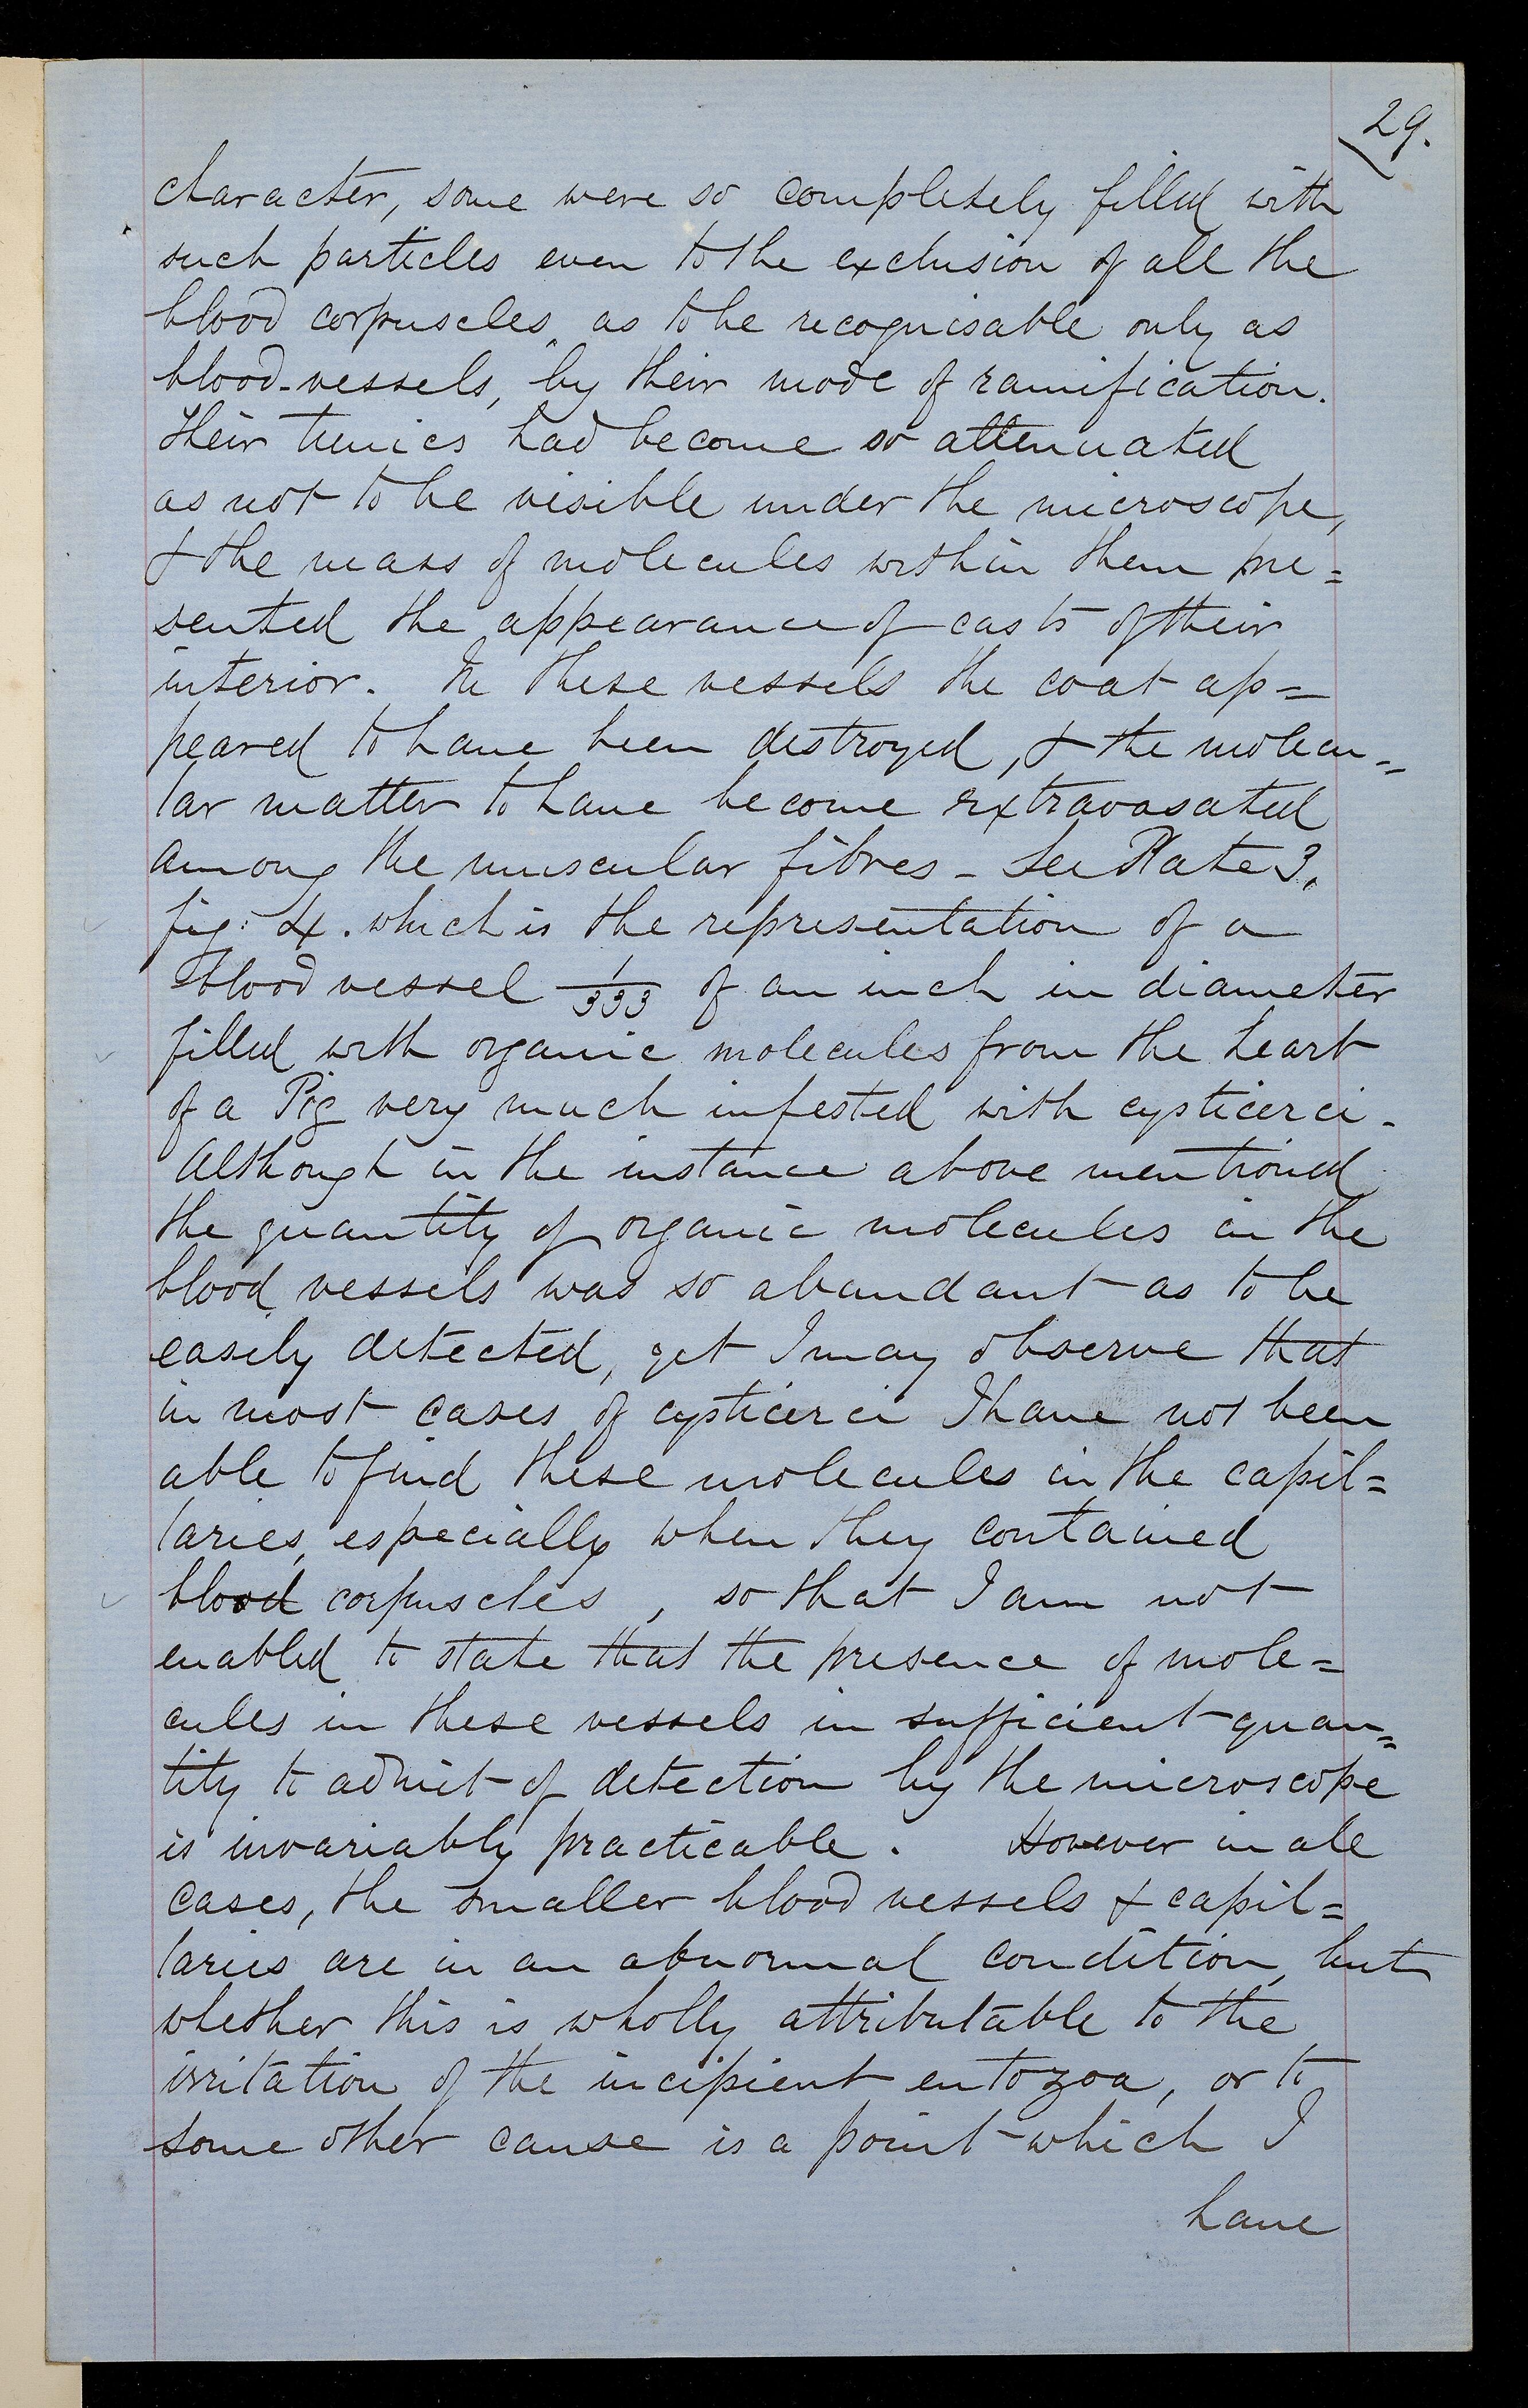 29.
character, some were so completely filled with
such particles even to the exclusion of all the
blood corpuscles, as to be recognisable only as
blood-vessels, by their mode of ramification.
Their tunics had become so attenuated
as not to be visible under the microscope,
& the mass of molecules within them pre=
sented the appearance of casts of their
interior. In these vessels the coat ap=
peared to have been destroyed, & the molecu=
lar matter to have become extravasated
among the muscular fibres - See Plate 3.
fig: 4. which is the representation of a
blood vessel 1/333 of an inch in diameter
filled with organic molecules from the heart
of a Pig very much infested with cysticerci.
Although in the instance above mentioned
the quantity of organic molecules in the
blood vessels was so abundant as to be
easily detected, yet I may observe that
in most cases of cysticerci I have not been
able to find these molecules in the capil=
laries, especially when they contained
blood corpuscles, so that I am not
enabled to state that the presence of mole=
cules in these vessels in sufficient quan=
tity to admit of detection by the microscope
is invariably practicable. However in all
cases, the smaller blood vessels & capil=
laries are in an abnormal condition, but
whether this is wholly attributable to the
irritation of the incipient entozoa, or to
some other cause is a point which I
have